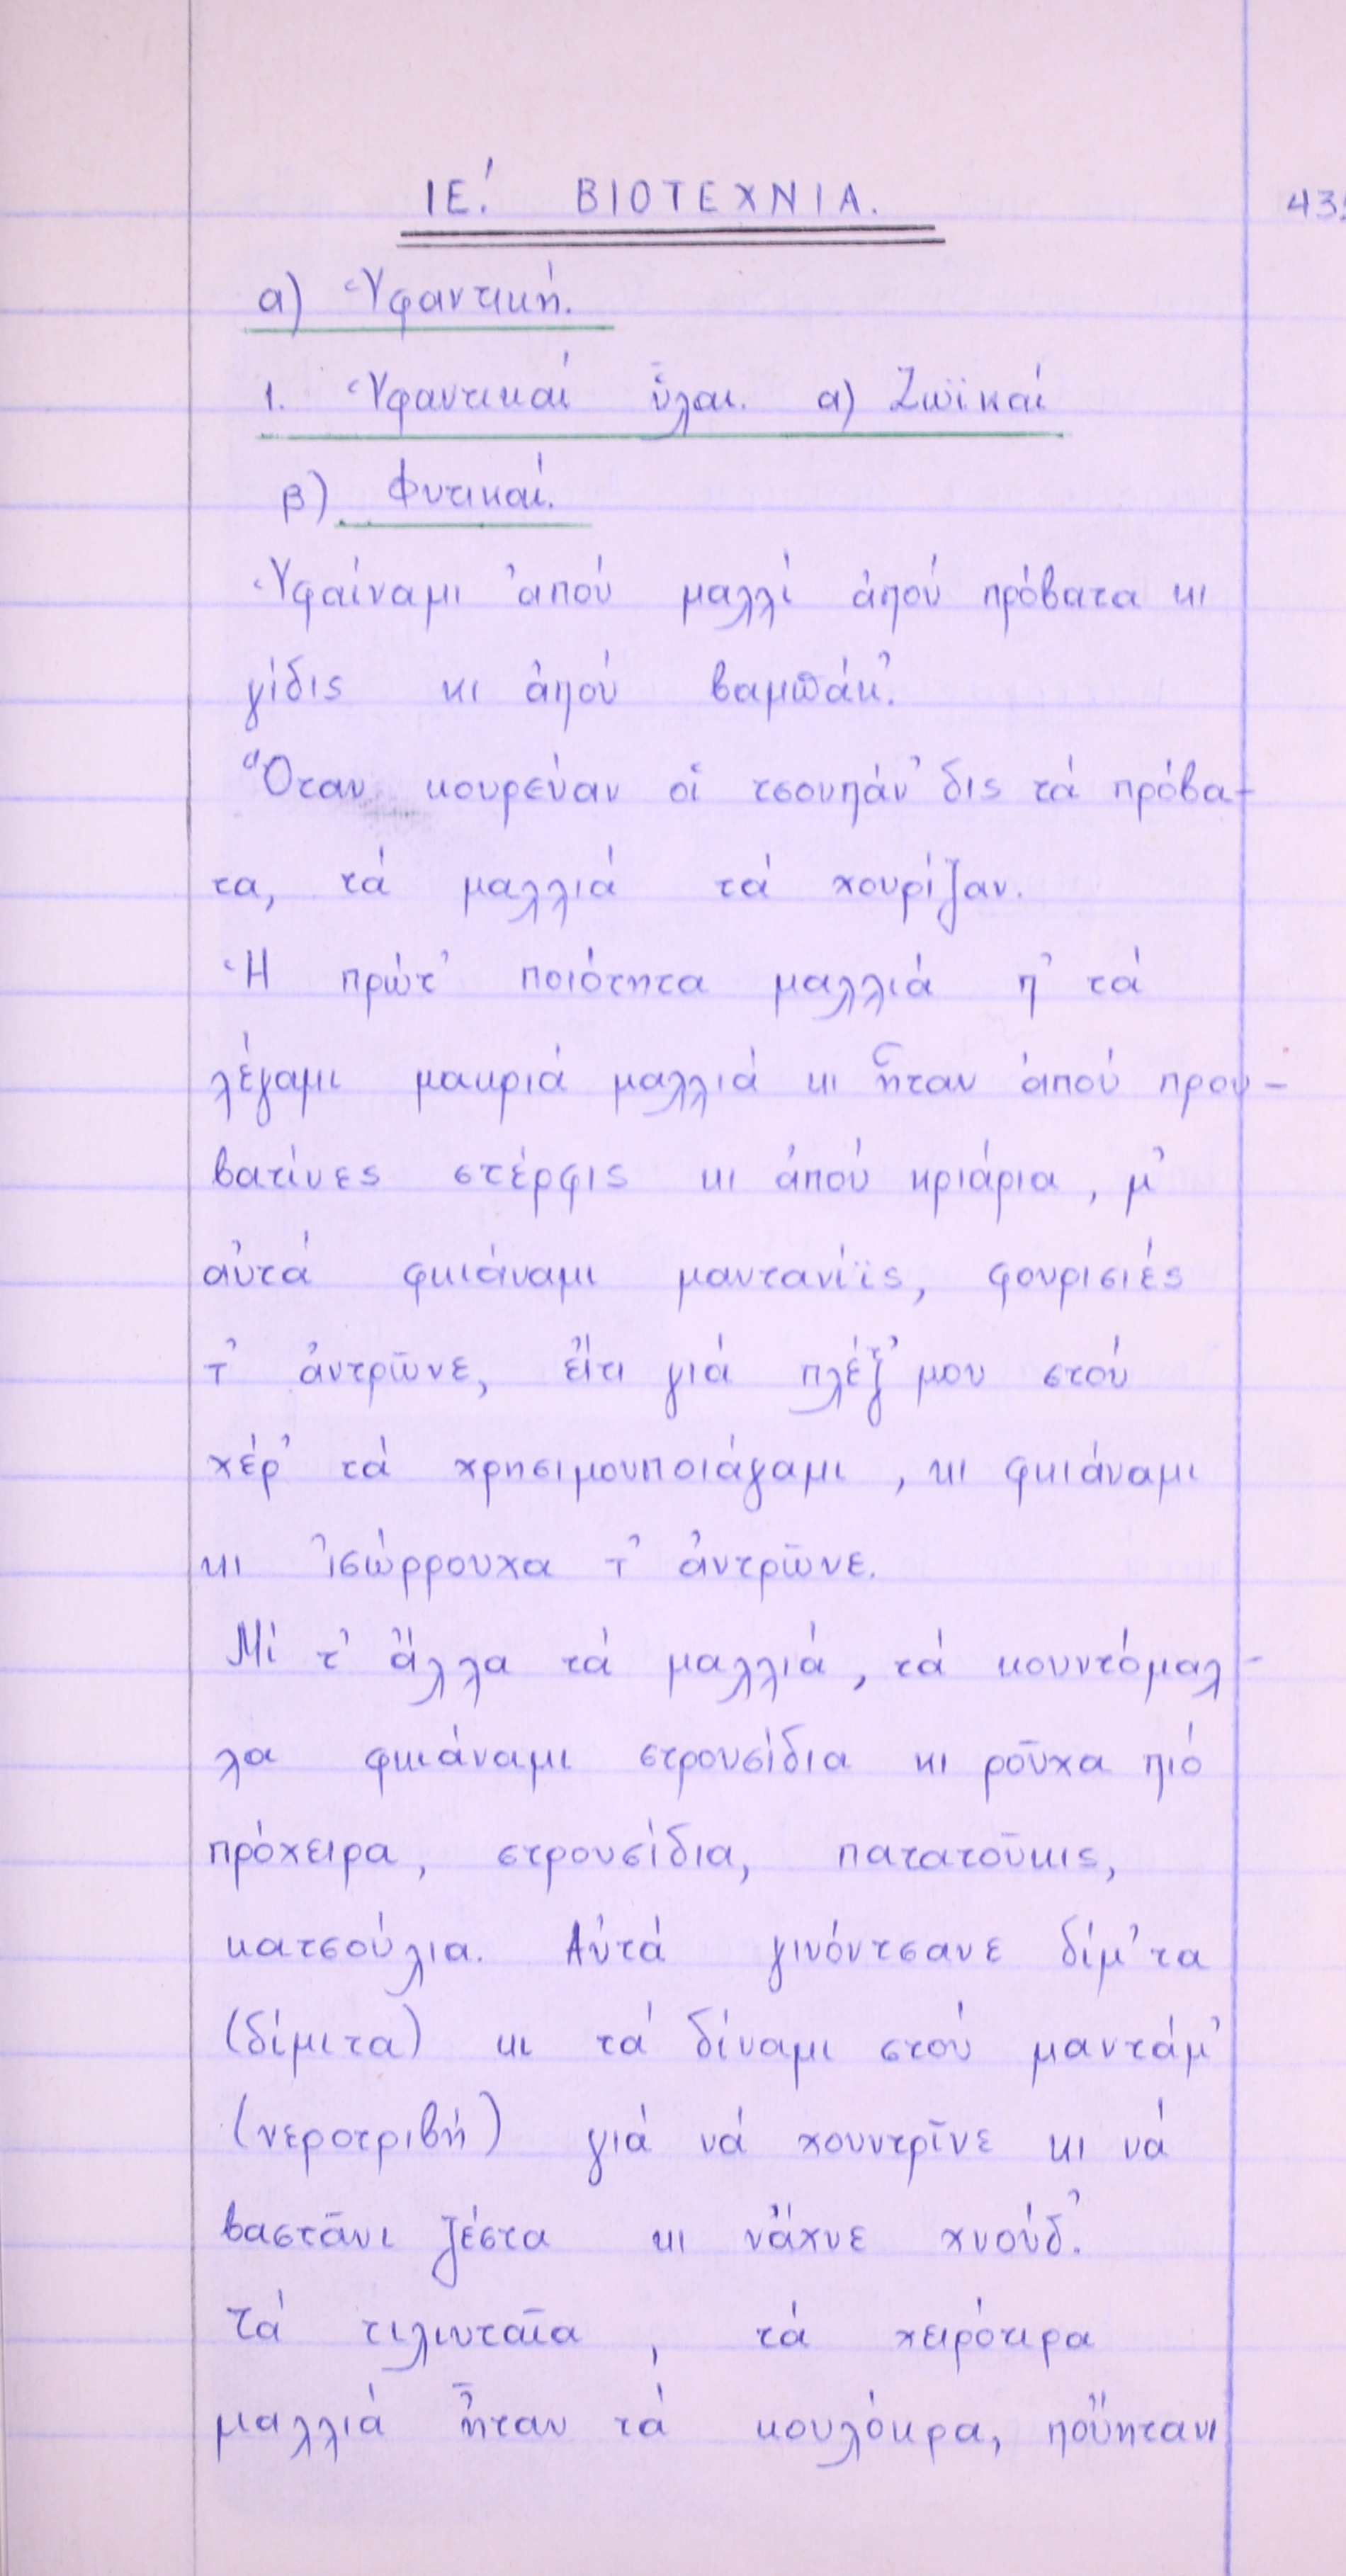 ΙΕ΄. ΒΙΟΤΕΧΝΙΑ.
α) Ὑφαντική.
1. Ὑφαντικαί ὗλαι. α) Ζωϊκαί
β) Φυτικαί.
Ὑφαίναμι ἀπού μαλλί ἀπού πρόβατα κι
γίδις κι ἀπού βαμπάκ'.
Ὅταν κουρεύαν οἱ τσουπάν'δις τά πρόβα-
τα, τά μαλλιά τά χουρίζαν.
Ἡ πρώτ' ποιότητα μαλλιά π' τά
λέγαμι μακριά μαλλιά κι ἦταν ἀπού πρου-
βατίνες στέρφις κι ἀπού κριάρια, μ'
αὐτά φκιάναμι μαντανίϊς, φουρισιές
τ' ἀντρῶνε, εἴτι γιά πλέξ'μου στού
χέρ' τά χρησιμουποιάγαμι, κι φκιάναμι
κι ἰσώρρουχα τ' ἀντρῶνε.
Μί τ' ἄλλα τά μαλλιά, τά κουντόμαλ-
λα φκιάναμι στρουσίδια κι ροῦχα πιό
πρόχειρα, στρουσίδια, πατατοῦκις,
κατσούλια. Αὐτά γινόντσανε δίμ'τα
(δίμιτα) κι τά δίναμι στού μαντάμ'
(νεροτριβή) γιά νά χουντρῖνε κι νά
βαστᾶνι ζέστα κι νἄχνε χνούδ'.
Τά τιλιυταῖα, τά χειρότιρα
μαλλιά ἦταν τά κουλόκρα, ποὔητανι